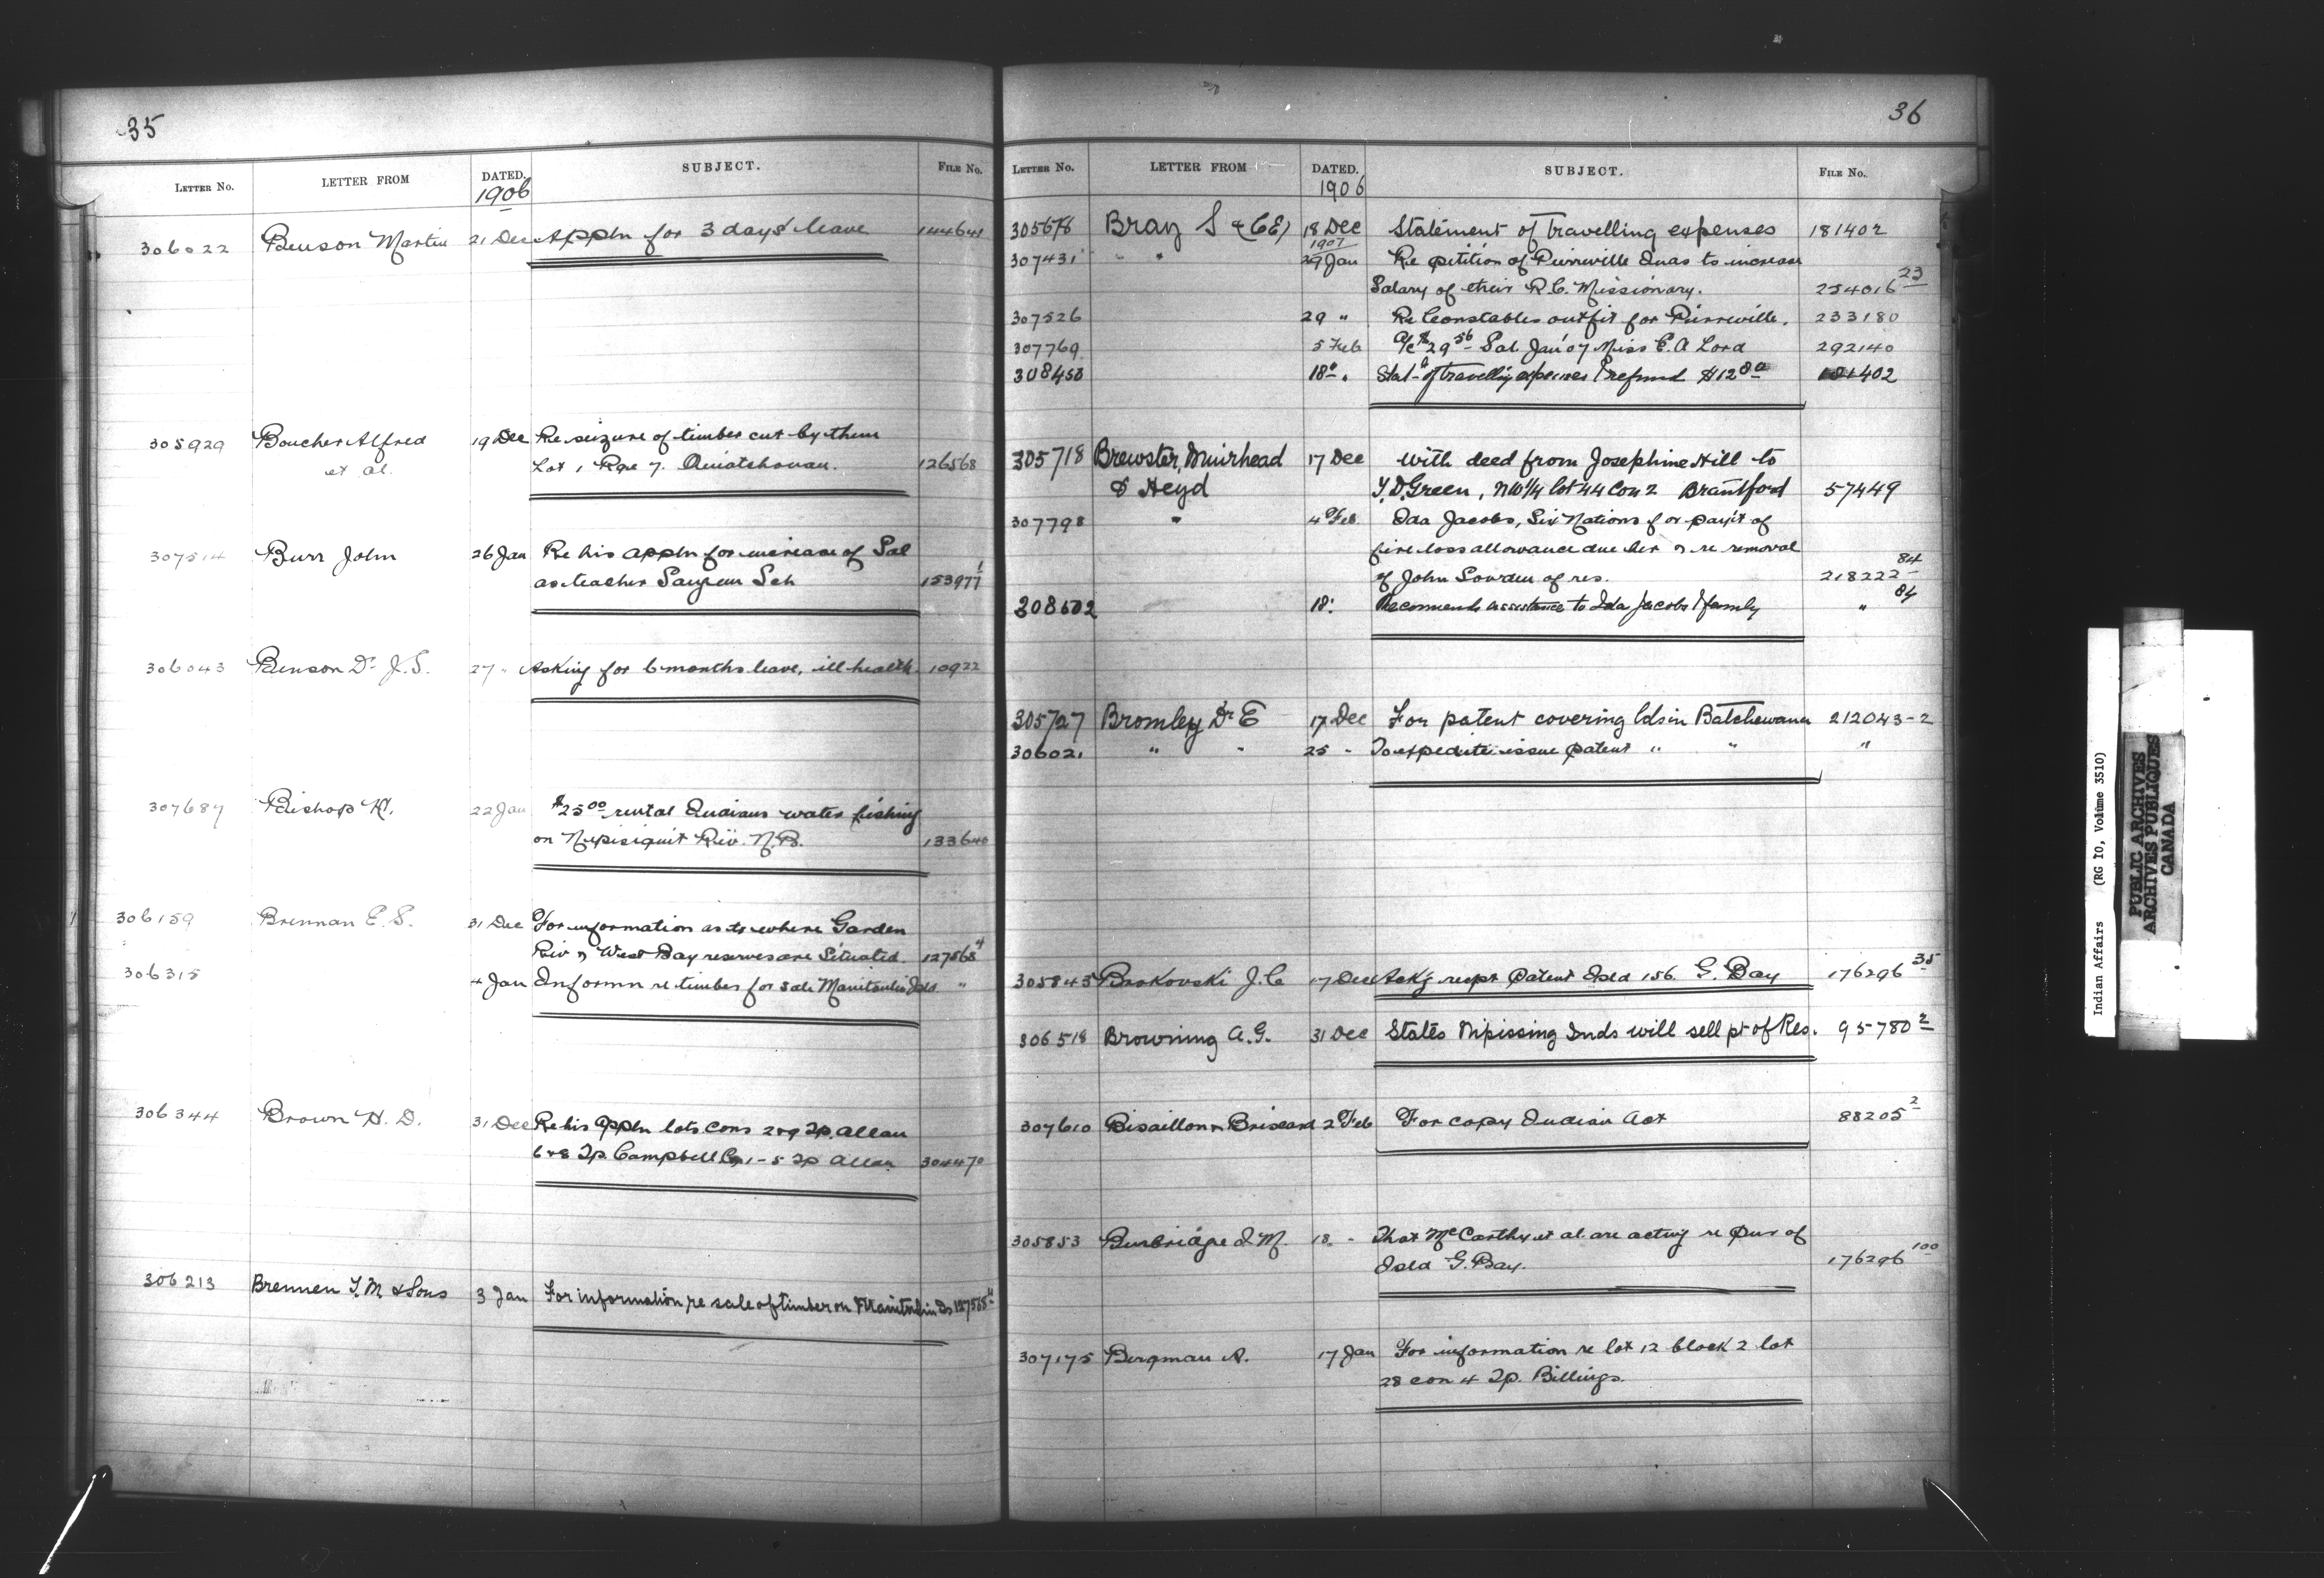 35
LETTER No. LETTER FROM DATED. SUBJECT. FILE No.
1906
306022 Benson Martin 21 Dec Appln for 3 days' leave 144641
305929 Boucher Alfred 19 Dec Re seizure of timber cut by them
et al. Lot 1 Rge 7. Ouiatchouan. 126568
307514 Burr John 26 Jan Re his appln for increase of Sal
as teacher Saugeen Sch 153977 1
306043 Benson Dr J.S. 27 " Asking for 6 months leave, ill health. 10922
307687 Bishop K. 22 Jan $25 00 rental Indians water fishing
on Nepisiquit Riv. N.B. 133640
306159 Brennan E.S. 31 Dec For information as to where Garden
Riv & West Bay reserves are Situated. 127568 4
306315 4 Jan Informn re timber for sale Manitoulin Isld. "
306344 Brown H.D. 31 Dec Re his appln lots cons 2 & 9 Tp. Allan
6 & 8 Tp. Campbell Con 1-5 Tp Allan 304470
306213 Brennen T.M. & Sons 3 Jan For information re sale of timber on Manitoulin Is 127568 4
36
LETTER No. LETTER FROM DATED. SUBJECT. FILE No.
1906
305676 Bray S (CE) 18 Dec Statement of travelling expenses 181402
1907
307431 " " 29 Jan Re petition of Pierreville Inds to increase
Salary of their R.C. Missionary. 254016 23
307526 29 " Re Constables outfit for Pierreville. 233180
307769 5 Feb a/c $29 56 Sal. Jan '07 Miss E.A Lord 292140
308453 18 " Stat of travelling expenses & refund $12 80 181402
305718 Brewster, Muirhead 17 Dec With deed from Josephine Hill to
& Heyd T.D. Green, NW 1/4 lot 44 Con 2 Brantford 57449
307798 " 4 Feb. Ida Jacobs, Six Nations for paym't of
fire loss allowance due her & re removal
of John Lowden of res. 218222 84
308602 18 " Recommends assistance to Ida Jacobs & family " 84
305727 Bromley Dr E 17 Dec For patent covering lds in Batchewana 212043-2
306021 " " 25 " To expedite issue patent " " "
305845 Brokovski J.C 17 Dec Ask'g respt Patent Isld 156. G. Bay 176296 35
306518 Browning A.G. 31 Dec States Nipissing Inds will sell pt of Res. 95780 2
307610 Bisaillon & Brissard 2 Feb For copy Indian Act 88205 2
305853 Burbridge J.M. 18 " That McCarthy et al. are acting re pur of
Isld G. Bay. 176296 100
307175 Bergman A. 17 Jan For information re lot 12 block 2 lot
28 con 4 Tp. Billings.
Indian Affairs (RG 10, Volume 3510)
PUBLIC ARCHIVES
ARCHIVES PUBLIQUES
CANADA